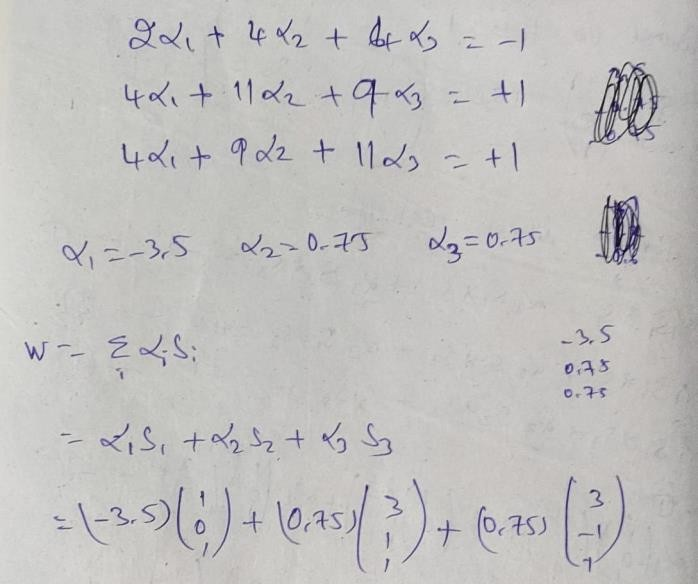 2α₁ + 4α₂ + 4α₃ = -1
4α₁ + 11α₂ + 9α₃ = +1
4α₁ + 9α₂ + 11α₃ = +1
α₁ = -3.5 α₂ = 0.75 α₃ = 0.75
W = Σᵢ αᵢSᵢ
-3.5
0.75
0.75
= α₁S₁ + α₂S₂ + α₃S₃
= (-3.5) (1 0 1) + (0.75) (3 1 1) + (0.75) (3 -1 1)